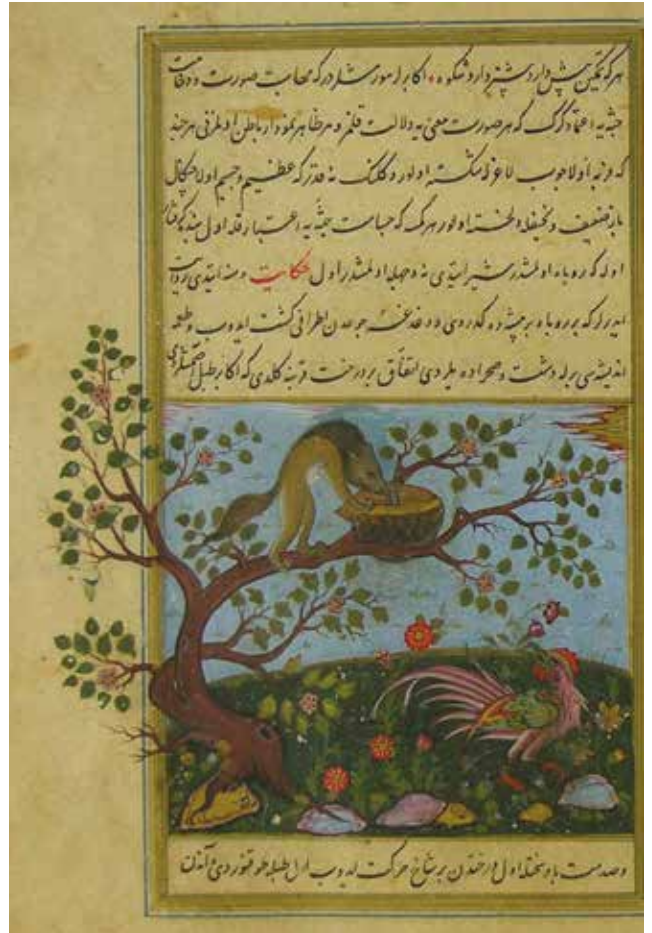 هر که تمکین پیش دارد بیشتر دارد شکوه • اکابر که مهابت صورت و
جثه یه اعتماد گرک که هر صورت معنی یه دلالت قلمز و هر ظاهر نمودار باطن اولمز نی هر چند
که فربه اولا چوب لاغرله شکسته اولور و کلنک نه قدر که عظیم و جسیم اولا چنکال
باز ضعیف و نحیفله خسته اولور هر که جسامت جثه یه اعتبار قله اول بنده گرفتار
اوله که روباه اولمشدر شیر ایتدی نه وجهله اولمشدر اول حکایت دمنه ایتدی روایت
ایدرلر که بر روباه بر بیشه ده کدردی و دغدغه جوعدن اطرافی کشت ایدوب و طعمه
اندیشه سی برله دشت و صحراده یلردی اتفاق بر درخت قربنه کلدی که اکا بر طبل اصمشلردی
و صدمت باد سختله اول درختدن بر شاخ حرکت ایدوب اول طبله طوقنوردی و آندن